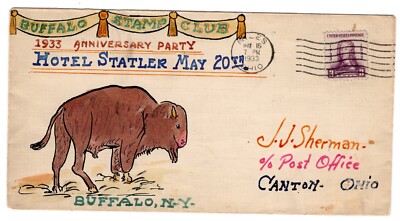 BUFFALO STAMP CLUB
1933 ANNIVERSARY PARTY
HOTEL STATLER MAY 20TH
MAY 16
7 PM
1933
OHIO
UNITED STATES POSTAGE
3
J.J. Sherman
c/o Post Office
CANTON - OHIO
BUFFALO, N.Y.